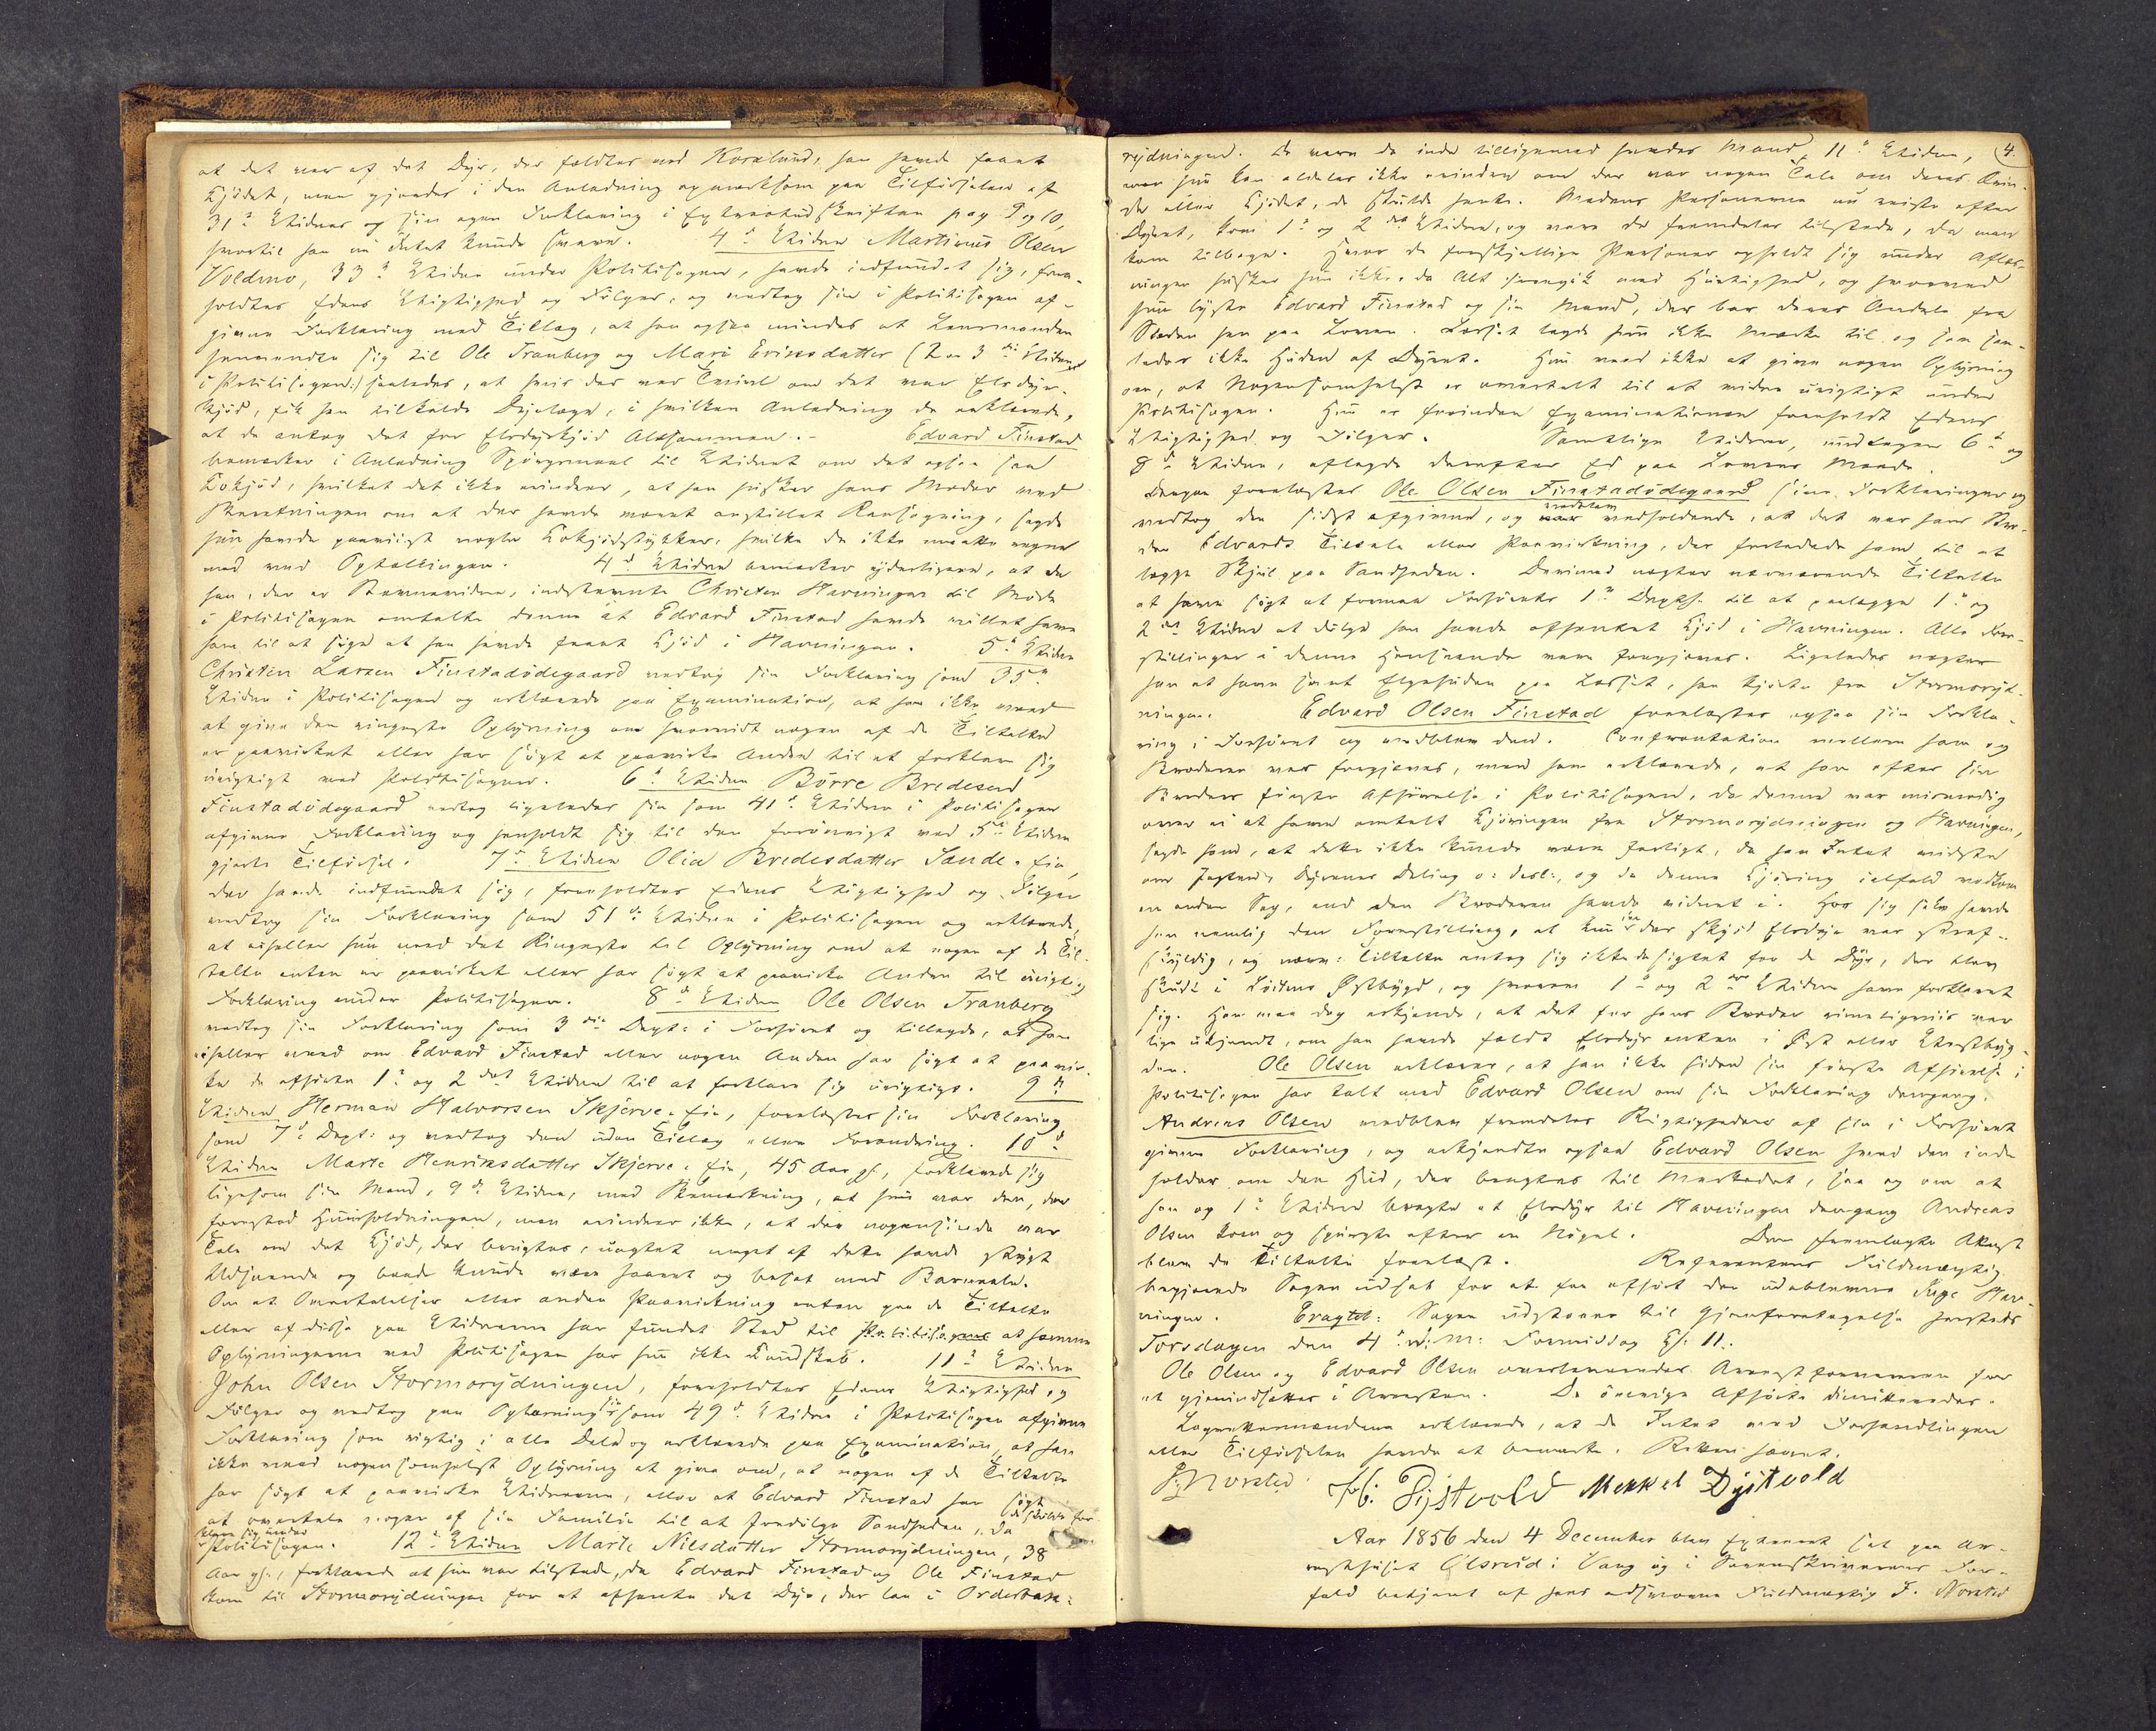 at det var af det Dyr, der fældtes ved Korslund, han havde faaet
Kjødet, men gjordes i den Anledning opmærksom paa Tilførselen af
31te Vidnes og sin egen Forklaring i Extraretsudskriften pag 9 og 10,
hvortil han nu Intet kunde svare. 4de Vidne Martinus Olsen
Voldmo, 33te Vidne under Politisagen, havde indfundet sig, fore-
holdtes Edens Vigtighed og Følger, og vedtog sin i Politisagen af-
givne Forklaring med Tillæg, at han ogsaa mindes at Lensmanden
henvendte sig til Ole Tranberg og Mari Eriksdatter (2 og 3die Vidner
i Politisagen) saaledes, at hvis der var Tvivl om det var Elsdyr-
kjød, fik han tilkalde Dyrlæge, i hvilken Anledning de erklærede,
at de antog det for Elsdyrkjød Altsammen. – Edvard Finstad
bemærker i Anledning Spørgsmaal til Vidnet om det ogsaa saa
Kokjød, hvilket det ikke erindrer, at han husker hans Moder ved
Ransagning, sagde
hun havde paaviist nogle Kokjødstykker, hvilke de ikke maatte regne
med ved Optællingen. 4de Vidne bemærker yderligere, at da
han, der er Stevnevidne, indstevnte Christen Havningen til Møde
i Politisagen omtalte denne at Edvard Finstad havde villet have
ham til at sige at han havde faaet Kjød i Havningen. 5te Vidne
Christen Larsen Finstadødegaard vedtog sin Forklaring som 35te
Vidne i Politisagen og erklærede paa Examination, at han ikke veed
at give den ringeste Oplysning om hvorvidt nogen af de Tiltalte
er paavirket eller har søgt at paavirke Anden til at forklare sig
urigtigt ved Politisagen. 6te Vidne Börre Bredesen
Finstadødegaard vedtog ligeledes sin som 41de Vidne i Politisagen
afgivne Forklaring og henholdt sig til den forøvrigt ved 5te Vidne
gjorte Tilførsel. 7de Vidne Olia Bredesdatter Sande-Eie,
der havde indfundet sig, foreholdtes Edens Vigtighed og Følger
vedtog sin Forklaring som 51de Vidne i Politisagen og erklærede,
at eiheller hun veed det Ringeste til Oplysning om at nogen af de Til-
talte enten er paavirket eller har søgt at paavirke Anden til urigtig
Forklaring under Politisagen. 8de Vidne Ole Olsen Tranberg
vedtog sin Forklaring som 3die Dept: i Forhøret og tillagde, at han
eiheller veed om Edvard Finstad eller nogen Anden har søgt at paavir-
ke de afhørte 1te og 2det Vidne til at forklare sig urigtigt. 9de
Vidne Herman Halvorsen Skjerve-Eie, forelæstes sin Forklaring
som 7de Dept: og vedtog den uden Tillæg eller Forandring. 10de
Vidne Marte Henriksdatter Skjerve-Eie, 45 Aar gl., forklarede sig
ligesom sin Mand, 9de Vidne, med Bemærkning, at hun var den, der
forestod Huusholdningen, men erindrer ikke, at der nogensinde var
Tale om det Kjød, der brugtes, uagtet noget af dette havde stygt
Udseende og baade kunde være haaret og besat med Barnaale.
Om at Overtalelser eller anden Paavirkning enten paa de Tiltalte
eller af disse paa Vidnerne har fundet Sted til Politisagens at hemme
Oplysningerne ved Politisagen har hun ikke Kundskab. 11te Vidne
John Olsen Stormorydningen, foreholdtes Edens Vigtighed og
Følger og vedtog paa Oplæsning sin som 49de Vidne i Politisagen afgivne
Forklaring som rigtig i alle Dele og erklærede paa Examination, at han
ikke veed nogensomhelst Oplysning at give om, at nogen af de Tiltalte
har søgt at paavirke Vidnerne, eller at Edvard Finstad har søgt
at overtale nogen af sin Familie til at fordølge Sandheden, da de skulde for-
klare sig under
Politisagen. 12te Vidne Marte Nilsdatter Stormorydningen, 38
Aar gl., forklarede at hun var tilstede, da Edvard Finstad og Ole Finstad
kom til Stormorydningen for at afhente det Dyr, der laa i Orderbak-
4.
rydningen. De vare da inde tilligemed hendes Mand, 11te Vidne,
men hun kan aldeles ikke erindre om der var nogen Tale om deres Ærin-
de eller Kjødet, de skulde hente. Medens Personerne nu reiste efter
Dyret, kom 1te og 2det Vidne, og vare de fremdeles tilstede, da man
kom tilbage. Hvor de forskjellige Personer opholdt sig under Aflæs-
ningen husker hun ikke, da Alt foregik med Hurtighed, og hvorved
hun lyste Edvard Finstad og sin Mand, der bar deres Andele fra
Sleden hen paa Loven. Læsset lagde hun ikke Mærke til og saa saa-
ledes ikke Huden af Dyret. Hun veed ikke at give nogen Oplysning
om, at Nogensomhelst er overtalt til at vidne urigtigt under
Politisagen. Hun er forinden Examinationen foreholdt Edens
Vigtighed og Følger. Samtlige Vidner, undtagen 6te og
8de Vidne, aflagde derefter Ed paa Lovens Maade.
Derpaa forelæstes Ole Olsen Finstadødegaard sine Forklaringer og
vedtog den sidst afgivne, og vedblev vedholdende, at det var hans Bro-
der Edvards Tiltale eller Paavirkning, der forledede ham til at
lægge Skjul paa Sandheden. Derimod negter nærværende Tiltalte
at have søgt at formaa Forhørets 1te Dept. til at paalægge 1te og
2det Vidne at dølge han havde afhentet Kjød i Havningen. Alle Fore-
stillinger i denne Henseende vare forgjæves. Ligeledes negter
han at have havt Elgshuden paa Læsset, han kjørte fra Stormoryd-
ningen. Edvard Olsen Finstad forelæstes ogsaa sin Forkla-
ring i Forhøret og vedblev den. Confrontation mellem ham og
Broderen var forgjæves, men han erklærede, at han efter sin
Broders første Afhørelse i Politisagen, da denne var mismodig
over ei at have omtalt Kjøringen fra Stormorydningen og Havningen,
sagde ham, at dette ikke kunde være farligt, da han Intet vidste
om Jagten, Dyrenes Deling o: desl:, og da denne Kjøring ialfald vedkom
en anden Sag, end den Broderen havde vidnet i. Hos sig selv havde
han nemlig den Forestilling, at kun een der skjød Elsdyr var straf-
skyldig, og nærv: Tiltalte antog sig ikke sigtet for de Dyr, der blev
skudt i Løitens Østbygd, og hvorom 1te og 2det Vidne have forklaret
sig. Han maa dog erkjende, at det for hans Broder rimeligviis var
lige ubekjendt, om han havde fældt Elsdyr enten i Øst eller Vestbyg-
den. Ole Olsen erklærer, at han ikke siden sin første Afhørelse i
Politisagen har talt med Edvard Olsen om sin Forklaring dengang.
Andreas Olsen vedblev fremdeles Rigtigheden af sin i Forhøret
givne Forklaring, og erkjendte ogsaa Edvard Olsen hvad den inde
holder om den Hud, der bragtes til Markedet, saa og om at
han og 1te Vidne bragte et Elsdyr til Havningen dengang Andreas
Olsen kom og spurgte efter en Nøgel. Den fremlagte Attest
blev de Tiltalte forelæst. Referentens Fuldmægtig
begjærede Sagen udsat for at faa afhørt den udeblevne Inge Hav-
ningen. Eragtet: Sagen udstaaer til Gjenforetagelse hersteds
Torsdagen den 4de n: M: Formiddag Kl. 11.
Ole Olsen og Edvard Olsen overleveredes Arrestforvareren for
at gjenindsættes i Arresten. De øvrige Afhørte dimitteredes.
Laugrettemændene erklærede, at de Intet ved Forhandlingen
eller Tilførselen havde at bemærke. Retten hævet.
J. Norsted H: Dystvold Mekkel Dystvold
Aar 1856 den 4 December blev Extraret sat paa Ar-
resthuset Olsrud i Vang og i Sorenskriverens For-
fald betjent af hans edsvorne Fuldmægtig J. Norsted